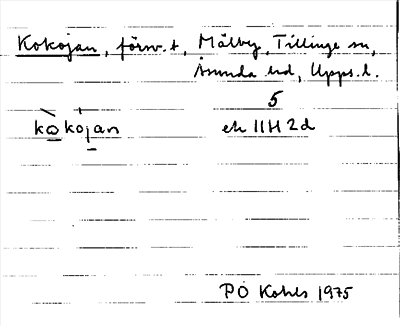 Kokojan, förv. t, Mälby, Tillinge sn,
Åsunda hd, Upps.l.
5
kokojan ek 11H 2d
PO Kohls 1975